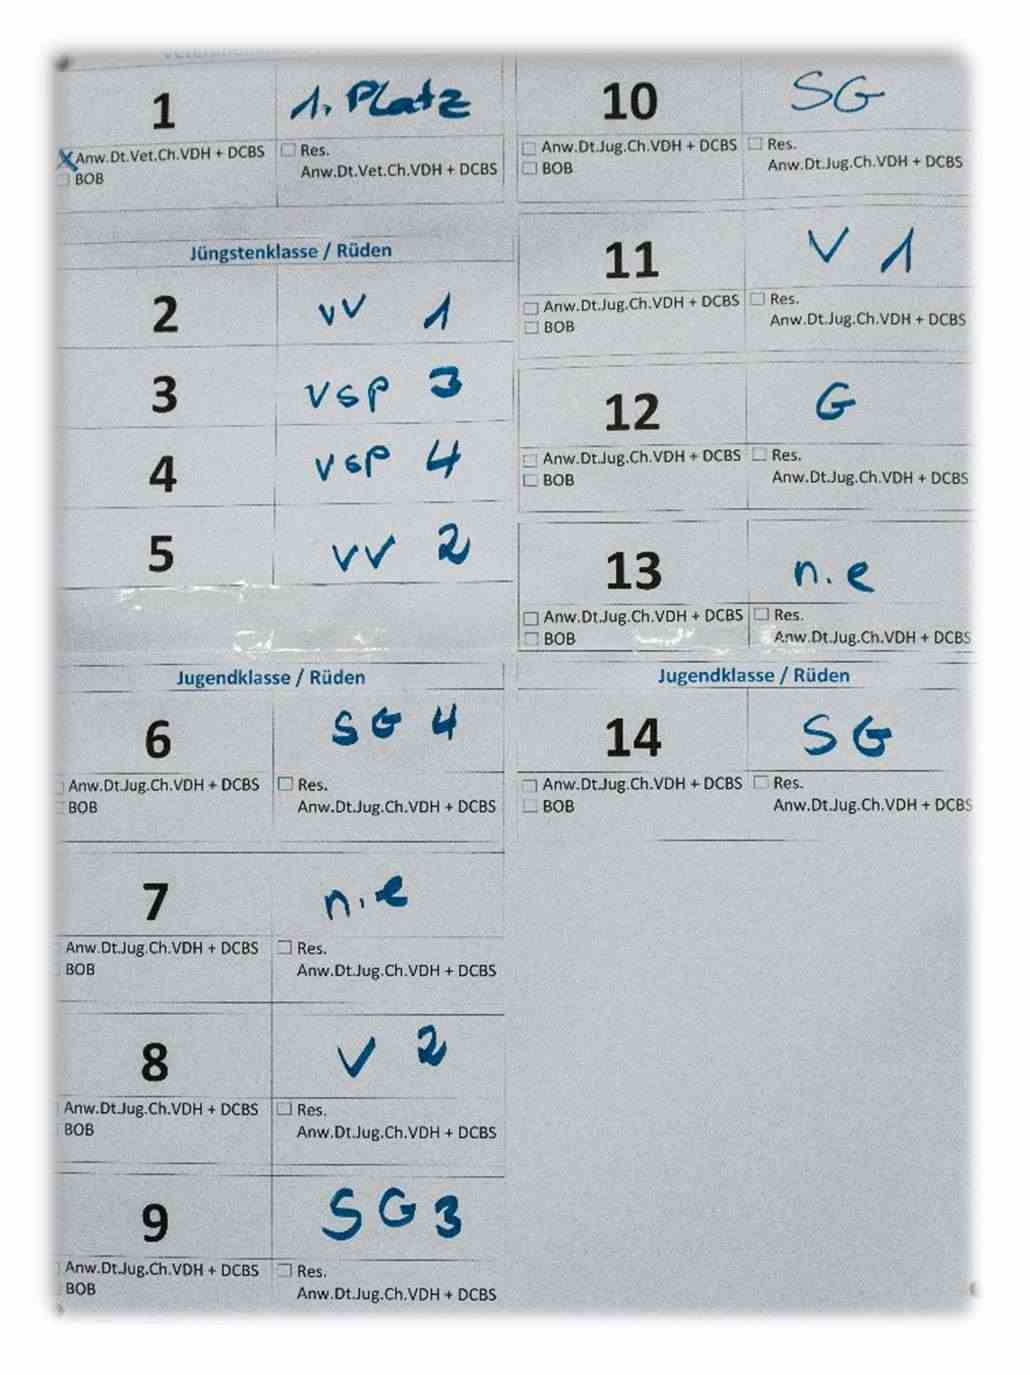 1
1. Platz
Anw.Dt.Vet.Ch.VDH + DCBS
BOB
Res.
Anw.Dt.Vet.Ch.VDH + DCBS
Jüngstenklasse / Rüden
2
vv 1
3
vsp 3
4
vsp 4
5
vv 2
Jugendklasse / Rüden
6
SG 4
Anw.Dt.Jug.Ch.VDH + DCBS
BOB
Res.
Anw.Dt.Jug.Ch.VDH + DCBS
7
n.e
Anw.Dt.Jug.Ch.VDH + DCBS
BOB
Res.
Anw.Dt.Jug.Ch.VDH + DCBS
8
V 2
Anw.Dt.Jug.Ch.VDH + DCBS
BOB
Res.
Anw.Dt.Jug.Ch.VDH + DCBS
9
SG 3
Anw.Dt.Jug.Ch.VDH + DCBS
BOB
Res.
Anw.Dt.Jug.Ch.VDH + DCBS
10
SG
Anw.Dt.Jug.Ch.VDH + DCBS
BOB
Res.
Anw.Dt.Jug.Ch.VDH + DCBS
11
V 1
Anw.Dt.Jug.Ch.VDH + DCBS
BOB
Res.
Anw.Dt.Jug.Ch.VDH + DCBS
12
G
Anw.Dt.Jug.Ch.VDH + DCBS
BOB
Res.
Anw.Dt.Jug.Ch.VDH + DCBS
13
n.e
Anw.Dt.Jug.Ch.VDH + DCBS
BOB
Res.
Anw.Dt.Jug.Ch.VDH + DCBS
Jugendklasse / Rüden
14
SG
Anw.Dt.Jug.Ch.VDH + DCBS
BOB
Res.
Anw.Dt.Jug.Ch.VDH + DCBS